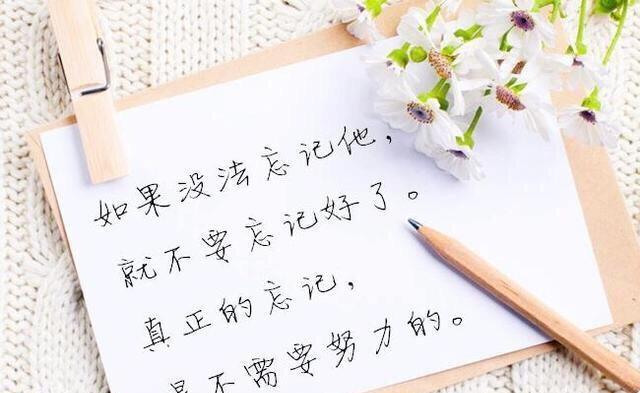 如果没法忘记他，
就不要忘记好了。
真正的忘记，
是不需要努力的。